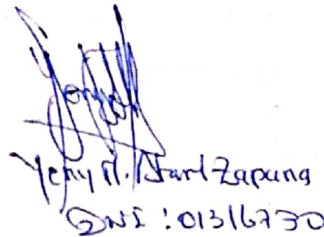 Yeny M. Zapana
DNI : 01316730